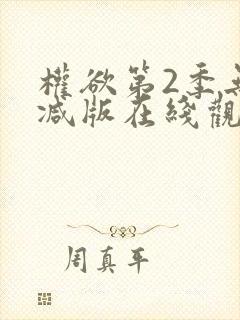 權欲第2季無
减版在綫觀
周真平